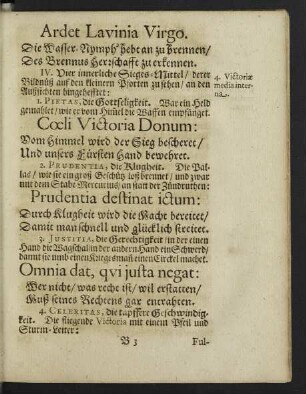 Ardet Lavinia Virgo.
Die Wasser-Nymph' hebt an zu brennen/
Des Brennus Herzschafft zu erkennen.
IV. Vier innerliche Sieges-Mittel/ derer
Bildnüß auf den kleinern Pforten zu sehen/ an den
Auffichten hingehefftet:
4. Victoriæ
media inter-
na.
1. PIETAS, die Gottseligkeit. War ein Held
gemahlet/ wie er vom Himel die Waffen empfänget.
Cœli Victoria Donum:
Vom Himmel wird der Sieg bescheret/
Und unsers Fürsten Hand bewehret.
2. PRUDENTIA, die Klugheit. Die Pal-
las/ wie sie ein groß Geschütz loß brennet/ und zwar
mit dem Stabe Mercurius/ an statt der Zündruthen:
Prudentia destinat ictum:
Durch Klugheit wird die Macht bereitet/
Damit man schnell und glücklich streitet.
3. JUSTITIA, die Gerechtigkeit/ in der einen
Hand die Wagschal/ in der andern Hand ein Schwerd/
damit sie umb einen Kriegesmañ einen Circkel machet.
Omnia dat, qvi justa negat:
Wer nicht/ was recht ist/ wil erstatten/
Muß seines Rechtens gar entrahten.
4. CELERITAS, die tapffere Geschwindig-
keit. Die fliegende Victoria mit einem Pfeil und
Sturm-Leiter:
B 3
Ful-